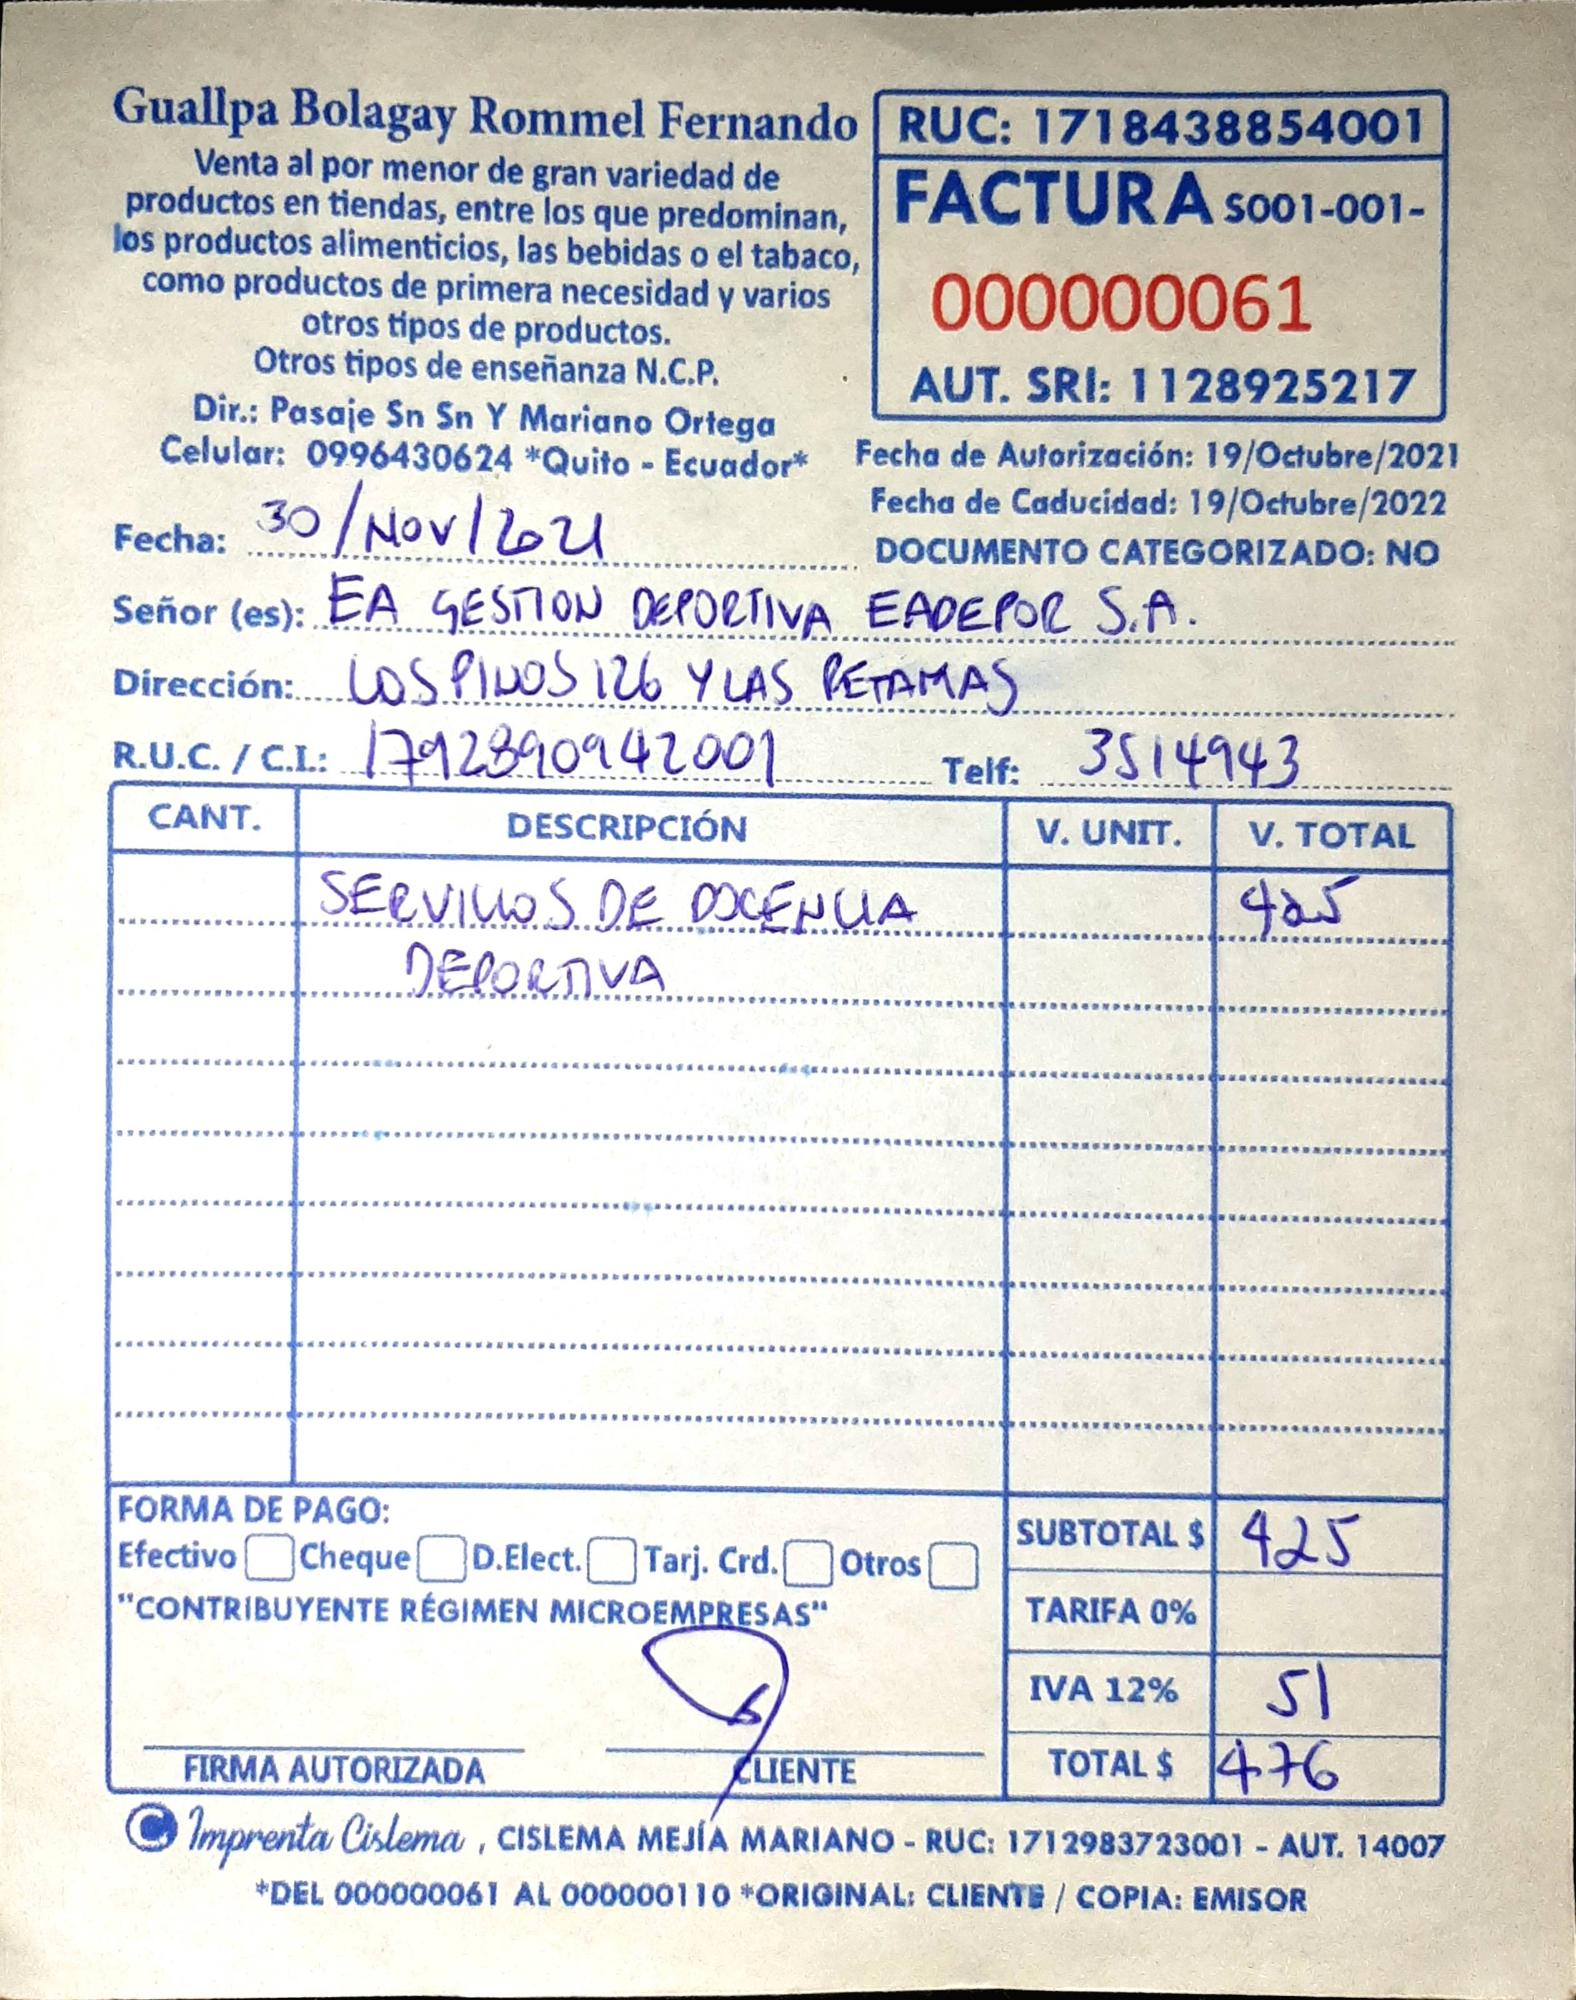 Guallpa Bolagay Rommel Fernando
Venta al por menor de gran variedad de
productos en tiendas, entre los que predominan,
los productos alimenticios, las bebidas o el tabaco,
como productos de primera necesidad y varios
otros tipos de productos.
Otros tipos de enseñanza N.C.P.
Dir.: Pasaje Sn Sn Y Mariano Ortega
Celular: 0996430624 *Quito - Ecuador*
RUC: 1718438854001
FACTURA S001-001-
000000061
AUT. SRI: 1128925217
Fecha de Autorización: 19/Octubre/2021
Fecha de Caducidad: 19/Octubre/2022
DOCUMENTO CATEGORIZADO: NO
Fecha: 30/NOV/2021
Señor (es): EA GESTION DEPORTIVA EADEPOR S.A.
Dirección: LOS PINOS 126 Y LAS RETAMAS
R.U.C. / C.I.: 1792890942001 Telf: 3514943
CANT. DESCRIPCIÓN V. UNIT. V. TOTAL
SERVICIOS DE DOCENCIA 425
DEPORTIVA
FORMA DE PAGO:
Efectivo Cheque D.Elect. Tarj. Crd. Otros
"CONTRIBUYENTE RÉGIMEN MICROEMPRESAS"
SUBTOTAL $ 425
TARIFA 0%
IVA 12% 51
TOTAL $ 476
FIRMA AUTORIZADA CLIENTE
Imprenta Cislema, CISLEMA MEJÍA MARIANO - RUC: 1712983723001 - AUT. 14007
*DEL 000000061 AL 000000110 *ORIGINAL: CLIENTE / COPIA: EMISOR